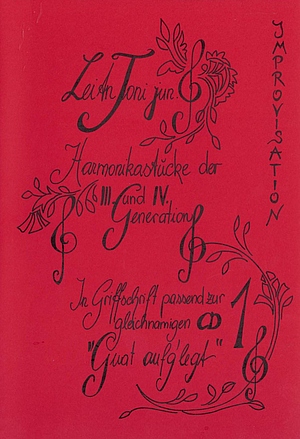 Leitn Toni jun.
IMPROVISATION
Harmonikastücke der
III. und IV.
Generation
In Griffschrift passend zur
gleichnamigen CD 1
"Guat aufg'legt"